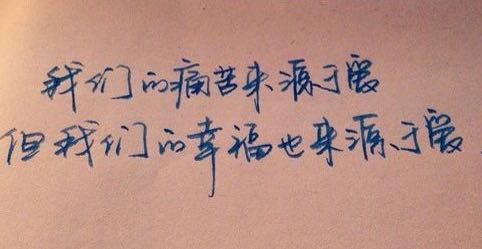 我们的痛苦来源于爱
但我们的幸福也来源于爱